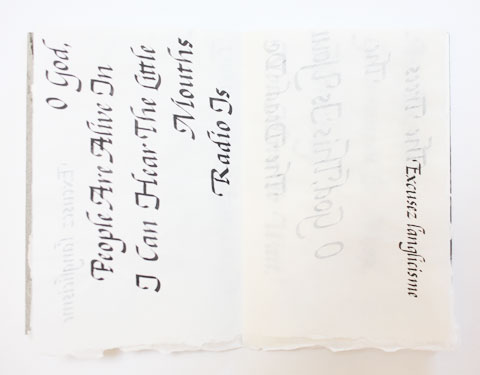 O God,
People Are Alive In
I Can Hear The Little
Mouths
Radio Is
Excusez langlicisme